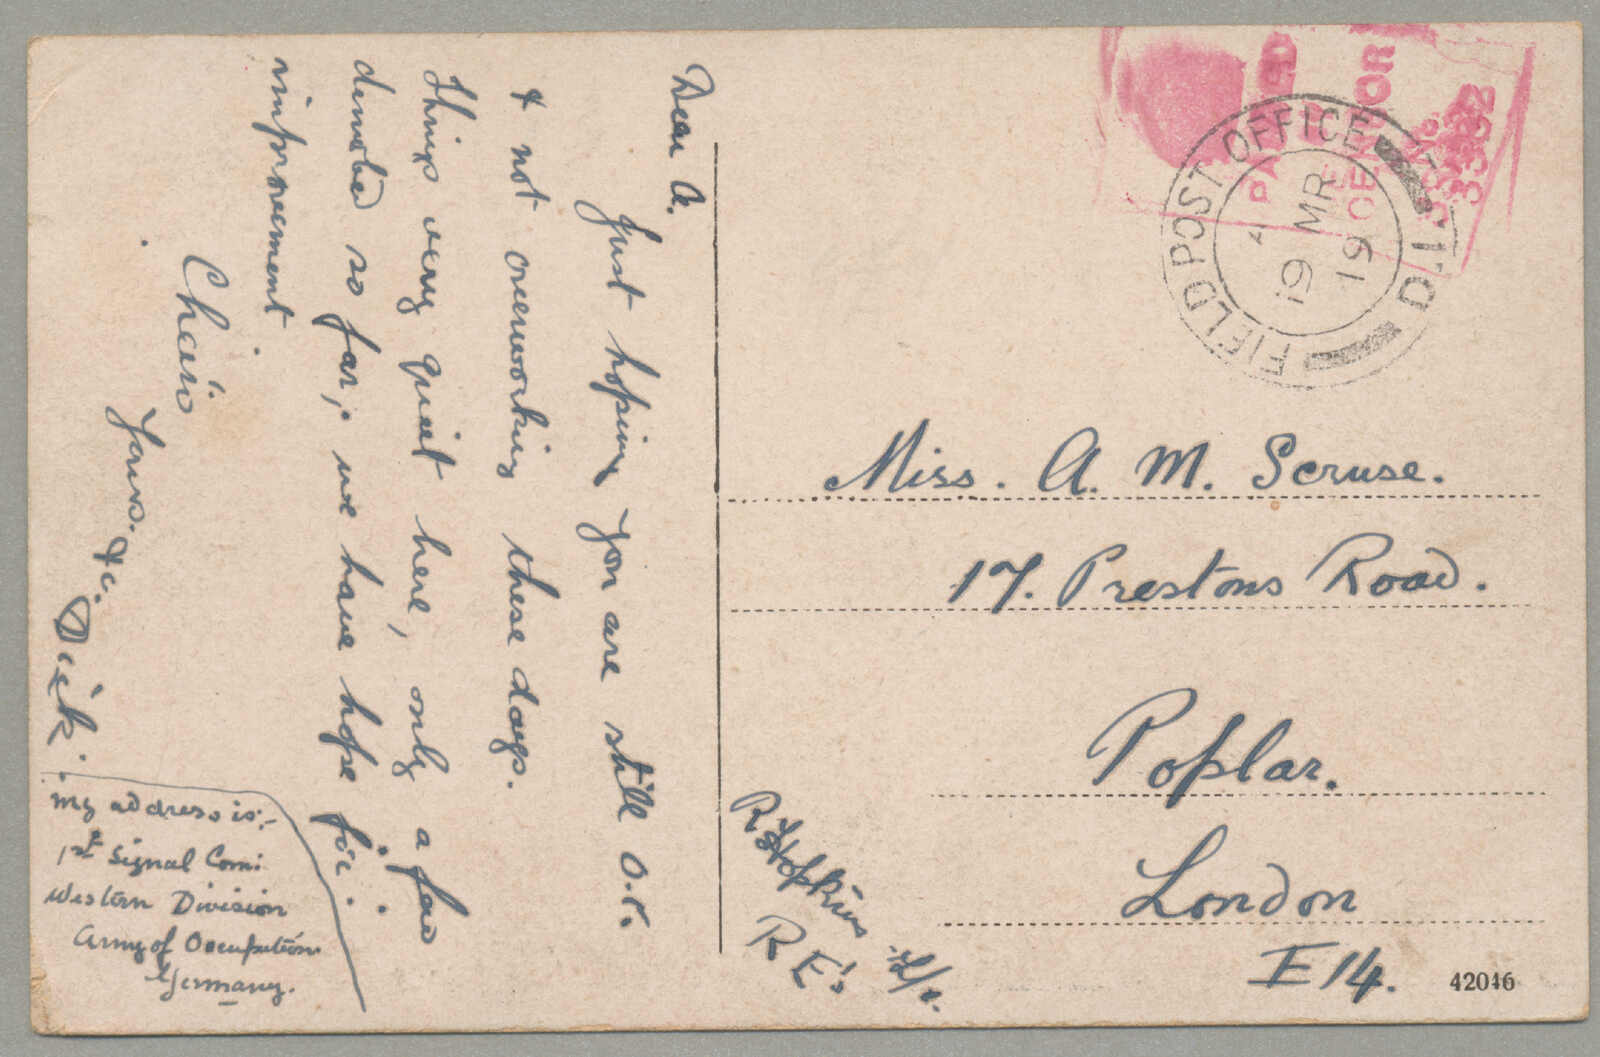 Dear A.
Just hoping you are still O.K.
& not overworking these days.
Things very quiet here, only a few
demobed so far, we have hope for
improvement
Cheiro
Yours. &c. Dick.
My address is:-
1st Signal Com:
Western Division
Army of Occupation
Germany.
PASSED
CENSOR
3332
FIELD POST OFFICE
D.1
A
19 MR
19
Miss. A. M. Scruse.
17. Prestons Road.
Poplar.
London
E 14.
R. Hopkins 2/Lt.
R E's
42046